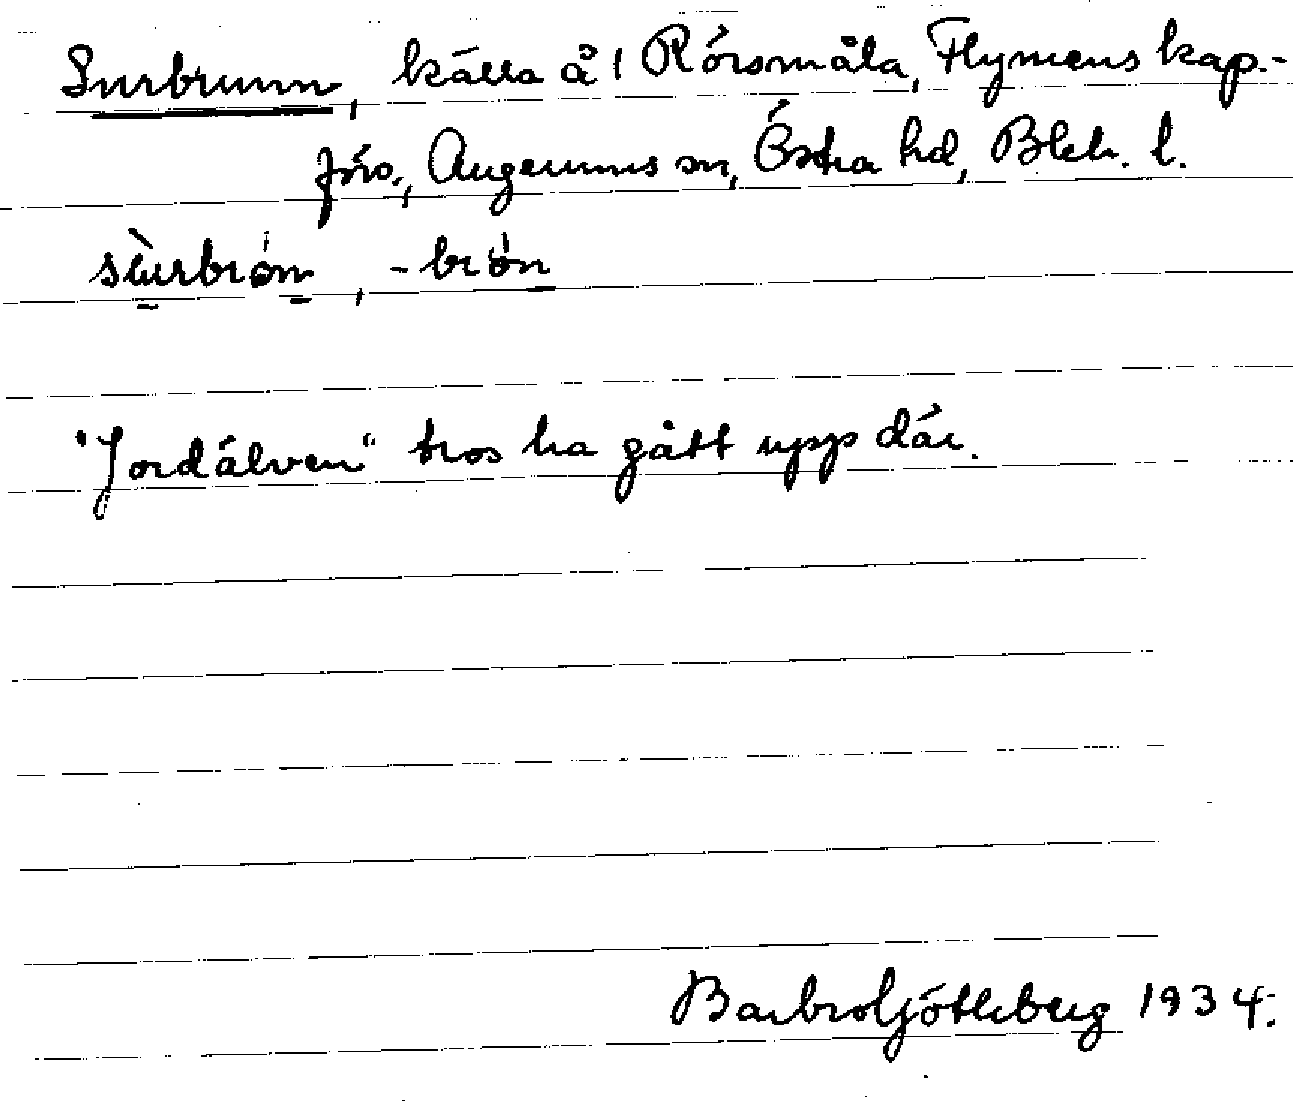 Surbrunn, källa å 1 Rörsmåla, Flymens kap.-
förs., Augerums sn, Östra hd, Blek. l.
sùrbrón, -brön
"Jordälven" tros ha gått upp där.
Barbro Götheberg 1934.